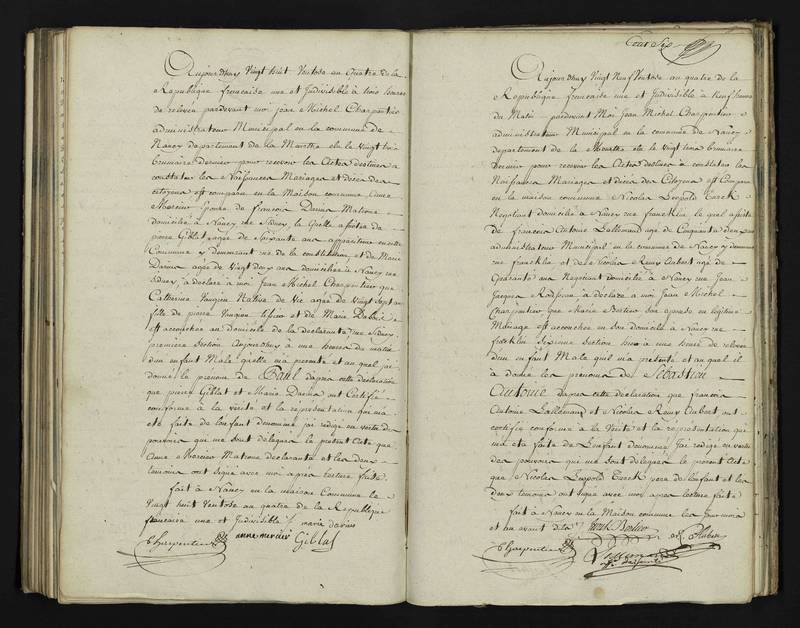 Aujourdhuy vingt huit Ventose an quatre de la
Republique francaise une et Indivisible à trois heures
de relevée pardevant moi jean Michel Charpentier
administrateur Municipal en la commune de
Nancy departement de la Meurthe elu le vingt trois
brumaire dernier pour recevoir les Actes destinés a
constater les Naissances Mariages et décès des
citoyens est comparu en la Maison commune Anne
Mercier Epouse de francois Matrone
domicilié à Nancy rue Sidney, la quelle assistée de
pierre Giblat agée de soixante ans en cette
Commune y demeurant rue de la constitution et de Marie
Darius agée de vingt deux ans domiciliée à Nancy rue
Sidney, a déclaré a moi Jean Michel Charpentier que
Catherine Native de Vic agée de vingt sept ans
fille de pierre et de Marie
est accouchée au domicile de la declarante rue Sidney
première section Aujourdhuy à une heure du matin
dun enfant Male quelle m'a presenté et au quel j'ai
donné le prenom de Paul d'apres cette declaration
que pierre Giblat et Marie Darius ont Certifié
conforme à la vérité et la représentation qui m'a
eté faite de l'enfant denommé jai redigé en vertu des
pouvoirs qui me sont délégués le présent Acte que
Anne Mercier Matrone declarante et les deux
temoins ont signé avec moi après lecture faite.
fait à Nancy en la maison Commune le
vingt huit Ventose an quatre de la Republique
francaise une et Indivisible
marie darius
Charpentier anne mercier Giblat
Cent Six
Aujourdhuy vingt neuf Ventose an quatre de la
Republique francaise une et Indivisible à neuf heures
du Matin pardevant Moi Jean Michel Charpentier
administrateur Municipal en la commune de Nancy
departement de la Meurthe elu le vingt trois brumaire
dernier pour recevoir les Actes destinés a constater les
Naissances Mariages et décès des Citoyens est Comparu
en la maison commune Nicolas Léopold
Négotiant domicilié a Nancy rue francklin le quel assisté
de francois Antoine Lallemand agé de Cinquante deux ans
administrateur Municipal en la commune de Nancy y demeurant
rue francklin et de Nicolas Remy Aubert agé de
Quarante ans Negotiant domicilié a Nancy rue Jean
Jacques Rousseau à déclaré a moi Jean Michel
Charpentier que Marie son epouse en légitime
Mariage est accouchée en son domicile a Nancy rue
francklin section hier à une heure de relevée
dun enfant Male quil m'a présenté et au quel il
à donné les prenoms de Sébastien
Antoine dapres cette declaration que francois
Antoine Lallemand et Nicolas Remy Aubert ont
certifié conforme à la Vérité et la représentation qui
m'a eté faite de Lenfant denommé Jai redigé en vertu
des pouvoirs qui me sont délégués le présent Acte
que Nicolas Léopold pere de Lenfant et les
deux temoins ont signé avec moi apres lecture faite
fait à Nancy en la Maison commune les jour mois
et an avant dits
Charpentier Aubert